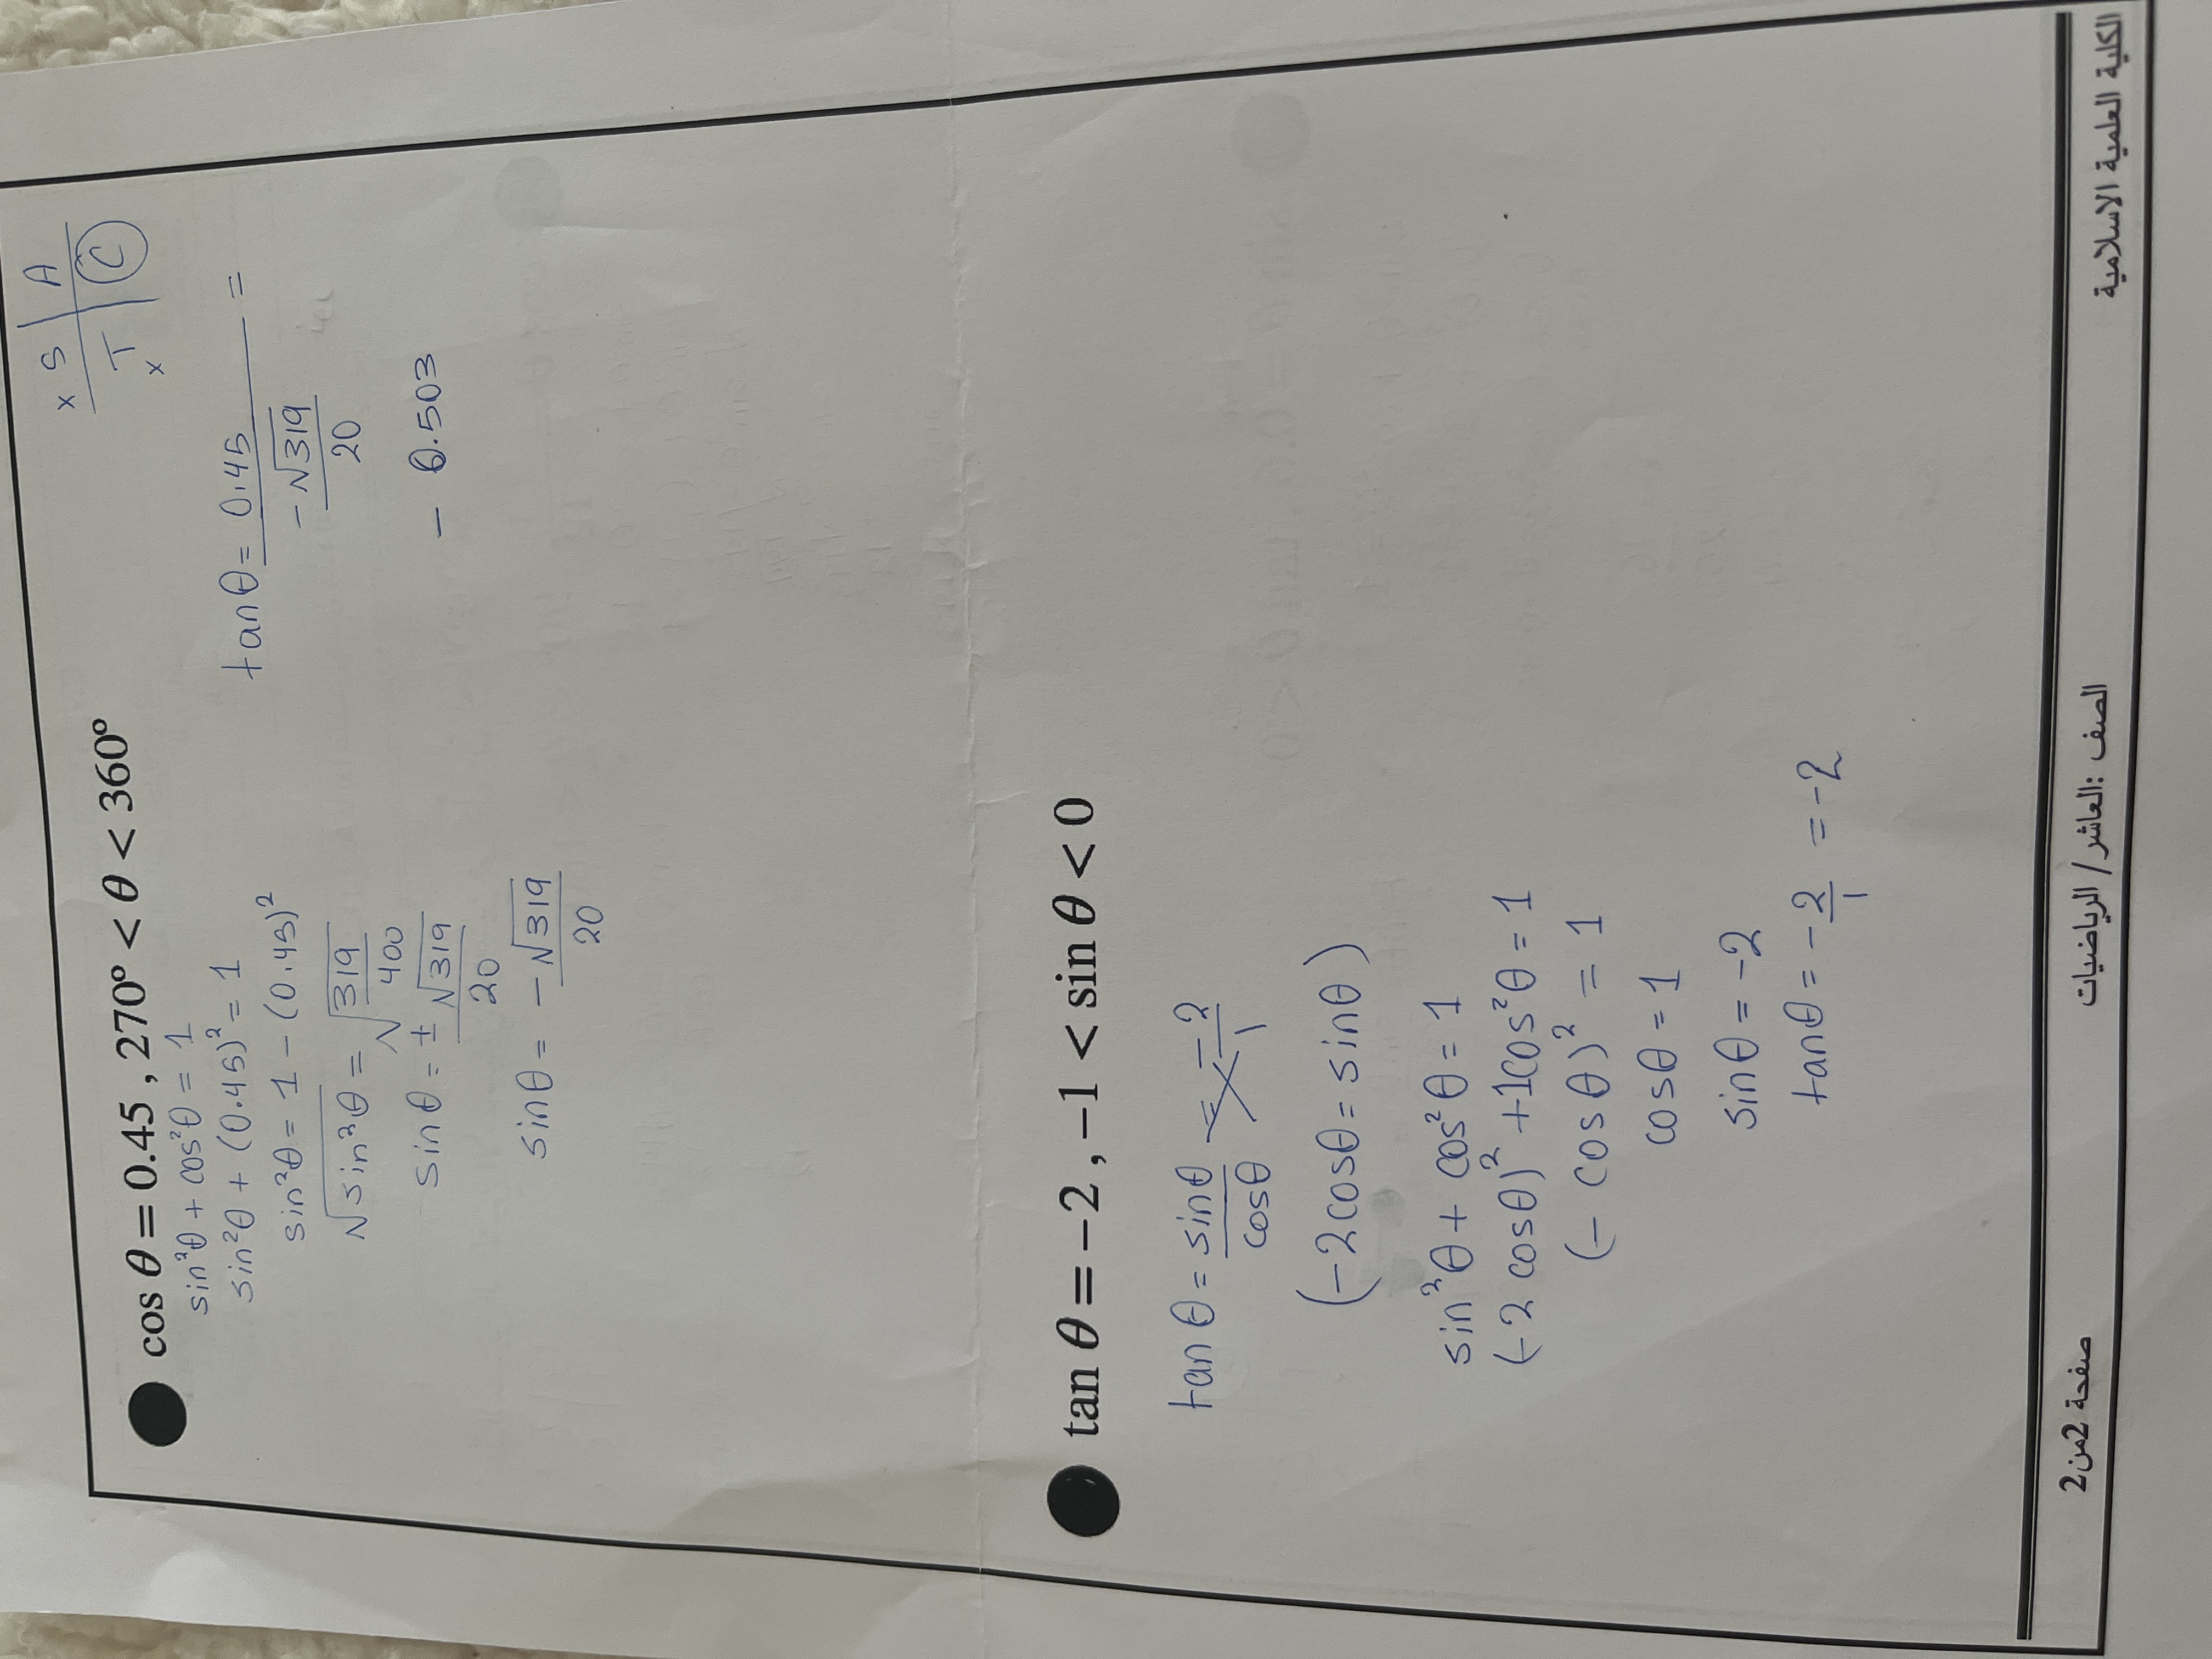 S | A
x
T | C
x
cos θ = 0.45 , 270° < θ < 360°
sin²θ + cos²θ = 1
sin²θ + (0.45)² = 1
sin²θ = 1 − (0.45)²
√sin²θ = √319/400
sin θ = ± √319/20
sin θ = − √319/20
tan θ = 0.45 / (−√319/20) =
− 0.503
tan θ = −2 , −1 < sin θ < 0
tan θ = sinθ/cosθ = −2/1
(−2cosθ = sinθ)
sin²θ + cos²θ = 1
(−2 cosθ)² + 1cos²θ = 1
(− cos θ)² = 1
cosθ = 1
sin θ = −2
tan θ = −2/1 = −2
صفحة 2من2 الصف :العاشر/ الرياضيات الكلية العلمية الاسلامية